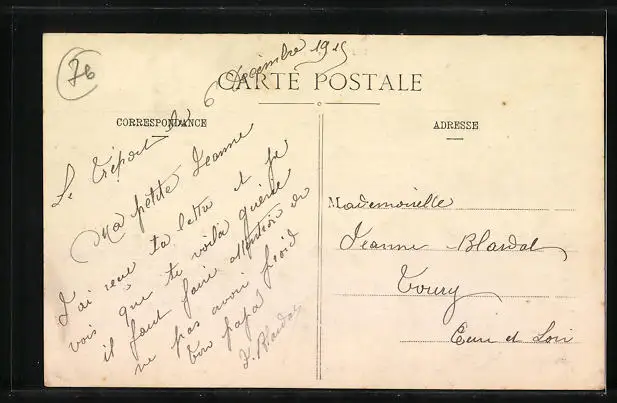 76
CARTE POSTALE
CORRESPONDANCE
ADRESSE
Le Tréport le 6 Décembre 1915
Ma petite Jeanne
J'ai reçu ta lettre et je
vois que te voilà guérie
il faut faire attention de
ne pas avoir froid
Ton papa
J. Blardat
Mademoiselle
Jeanne Blardat
Toury
Eure et Loir